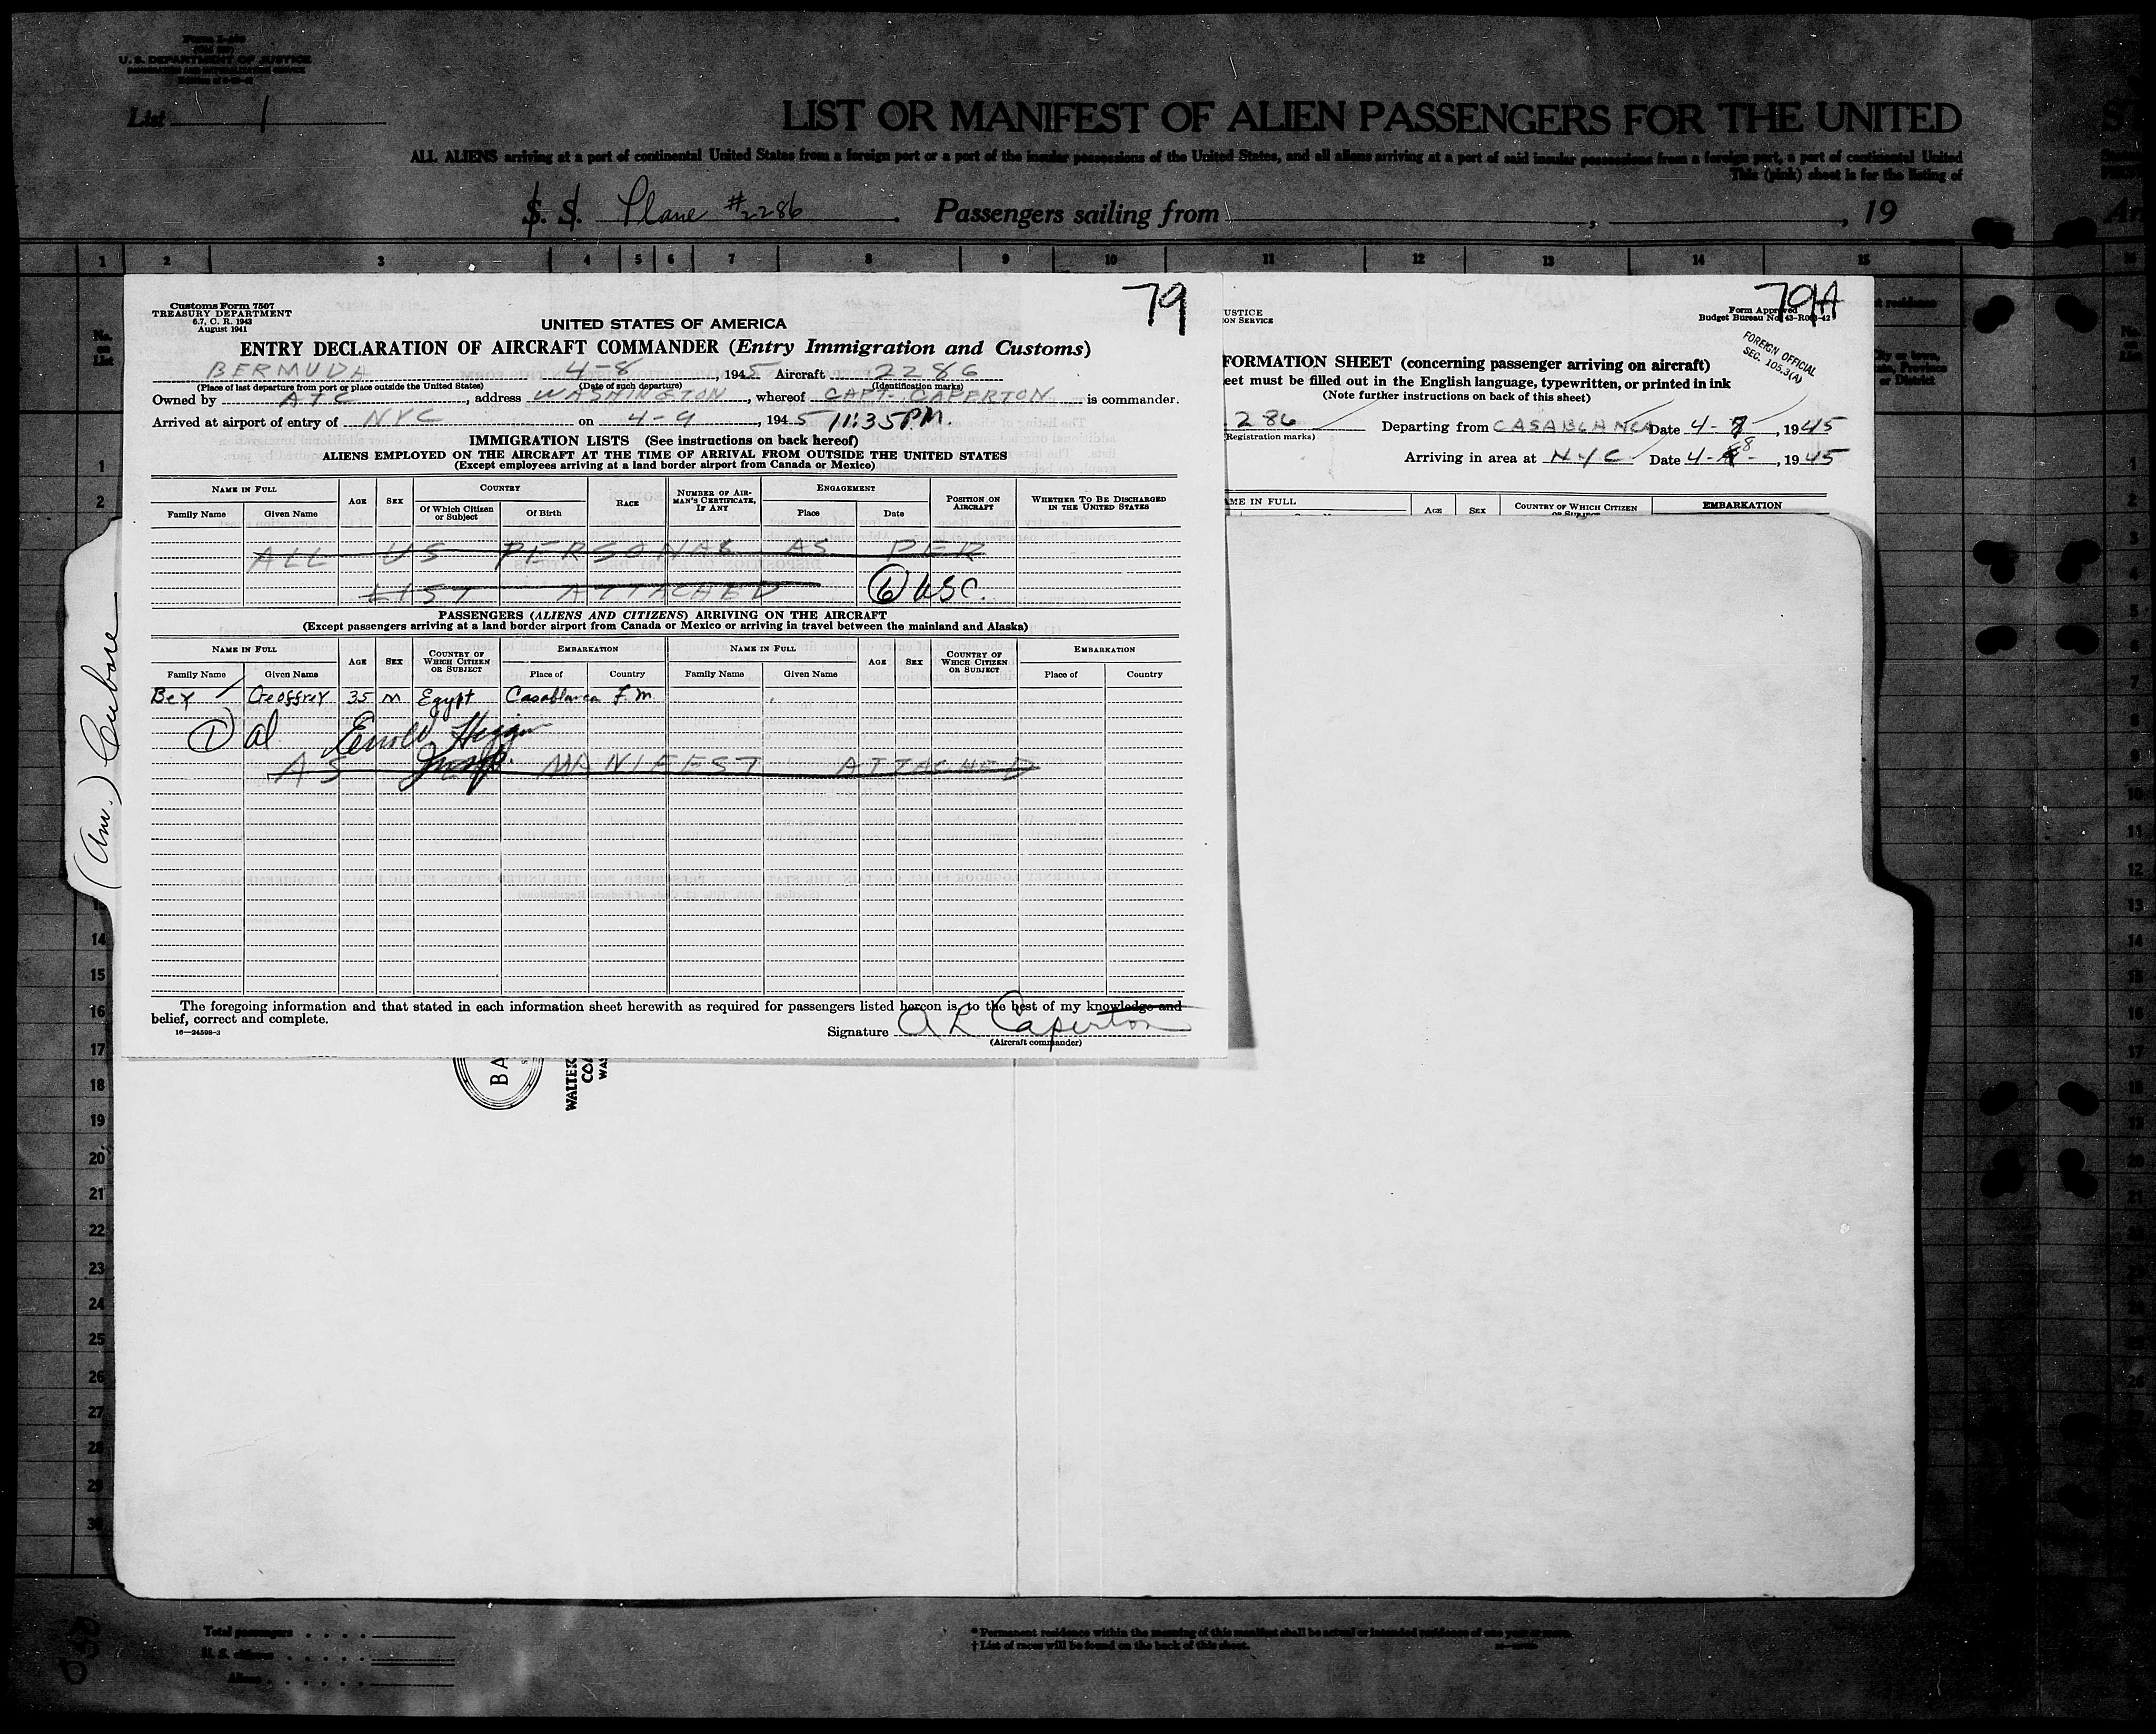 Form I-
U. S. DEPARTMENT OF JUSTICE
List 1
LIST OR MANIFEST OF ALIEN PASSENGERS FOR THE UNITED
ALL ALIENS arriving at a port of continental United States from a foreign port or a port of the insular possessions of the United States, and all aliens arriving at a port of said insular possessions from a foreign port, a port of continental United
This (pink) sheet is for the listing of
S. S. Plane #2286 . Passengers sailing from , , 19
1 2 3 4 5 6 7 8 9 10 11 12 13 14 15
79
Customs Form 7507
TREASURY DEPARTMENT
6.7, C. R. 1943
August 1941
UNITED STATES OF AMERICA
ENTRY DECLARATION OF AIRCRAFT COMMANDER (Entry Immigration and Customs)
BERMUDA 4-8, 1945 Aircraft 2286
(Place of last departure from port or place outside the United States) (Date of such departure) (Identification marks)
Owned by ATC, address WASHINGTON, whereof CAPT. CAPERTON is commander.
Arrived at airport of entry of NYC on 4-9, 1945 11:35 PM.
IMMIGRATION LISTS (See instructions on back hereof)
ALIENS EMPLOYED ON THE AIRCRAFT AT THE TIME OF ARRIVAL FROM OUTSIDE THE UNITED STATES
(Except employees arriving at a land border airport from Canada or Mexico)
NAME IN FULL AGE SEX COUNTRY RACE NUMBER OF AIRMAN'S CERTIFICATE, IF ANY ENGAGEMENT POSITION ON AIRCRAFT WHETHER TO BE DISCHARGED IN THE UNITED STATES
Family Name Given Name Of Which Citizen or Subject Of Birth Place Date
ALL US PERSONAL AS PER
LIST ATTACHED 6 USC.
PASSENGERS (ALIENS AND CITIZENS) ARRIVING ON THE AIRCRAFT
(Except passengers arriving at a land border airport from Canada or Mexico or arriving in travel between the mainland and Alaska)
NAME IN FULL AGE SEX COUNTRY OF WHICH CITIZEN OR SUBJECT EMBARKATION NAME IN FULL AGE SEX COUNTRY OF WHICH CITIZEN OR SUBJECT EMBARKATION
Family Name Given Name Place of Country Family Name Given Name Place of Country
Bey Geoffrey 35 M Egypt Casablanca F.M.
1 al
AS MANIFEST ATTACHED
The foregoing information and that stated in each information sheet herewith as required for passengers listed hereon is, to the best of my knowledge and
belief, correct and complete.
16—24598-3
Signature A L Caperton
(Aircraft commander)
79A
USTICE
ON SERVICE
Form Approved
Budget Bureau No. 43-R083-42
FOREIGN OFFICIAL
SEC. 105.3(A)
FORMATION SHEET (concerning passenger arriving on aircraft)
eet must be filled out in the English language, typewritten, or printed in ink
(Note further instructions on back of this sheet)
286 Departing from CASABLANCA Date 4-7, 1945
(Registration marks)
Arriving in area at NYC Date 4-8, 1945
AME IN FULL AGE SEX COUNTRY OF WHICH CITIZEN OR SUBJECT EMBARKATION
(Am.)
BA
WALTER
CO
WAS
14
15
16
17
18
19
20
21
22
23
24
25
26
27
28
29
30
Total passengers
U. S. citizens
Aliens
* Permanent residence within the meaning of this manifest shall be actual or intended residence of one year or more.
† List of races will be found on the back of this sheet.